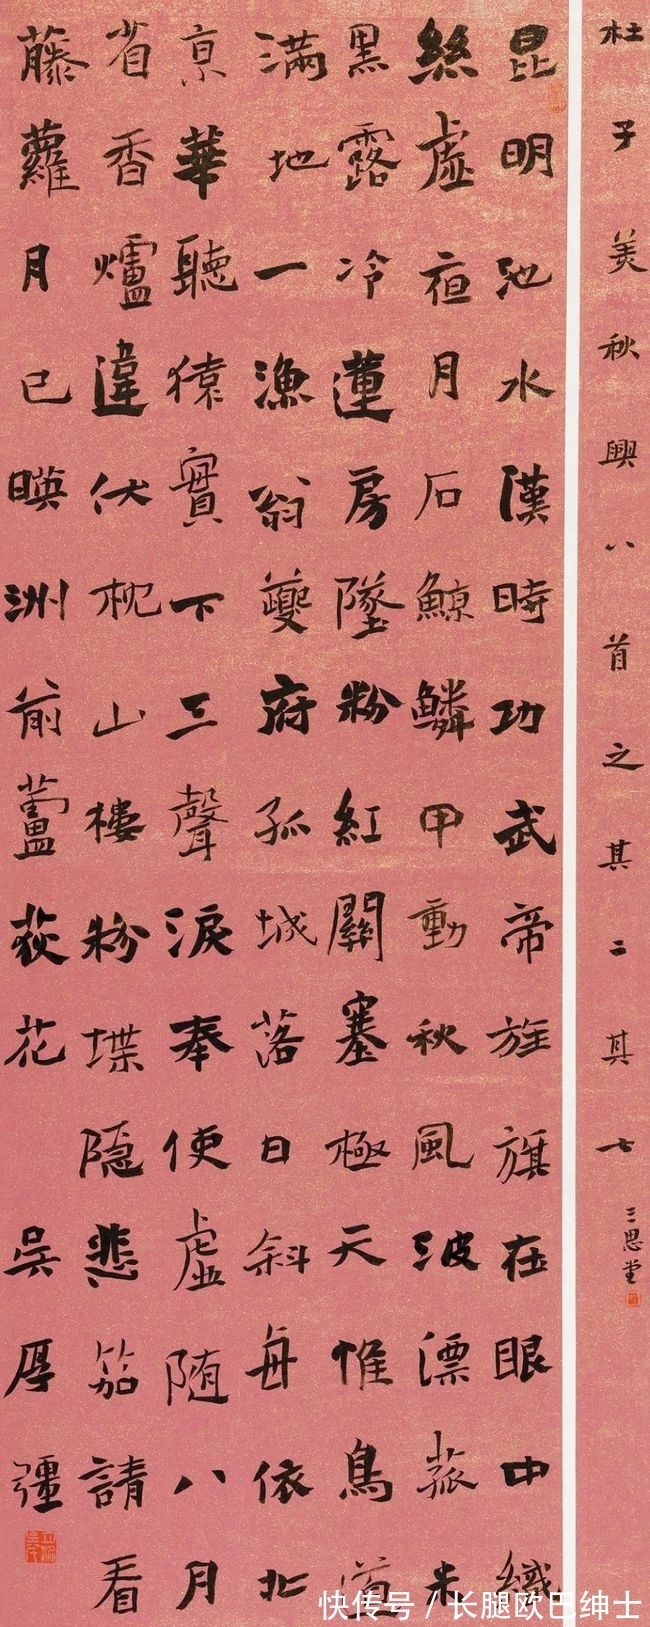 杜子美秋興八首之其二其七
三思堂
昆明池水漢時功武帝旌旗在眼中織
絲虛夜月石鯨鱗甲動秋風波漂菰米
黑露冷蓮房墜粉紅關塞極天惟鳥道
滿地一漁翁夔府孤城落日斜每依北
亰華聽猿實下三聲淚奉使虛随八月
省香爐違伏枕山樓粉堞隱悲笳請看
藤蘿月已暎洲前蘆荻花
吳厚彊
快传号/长腿欧巴绅士